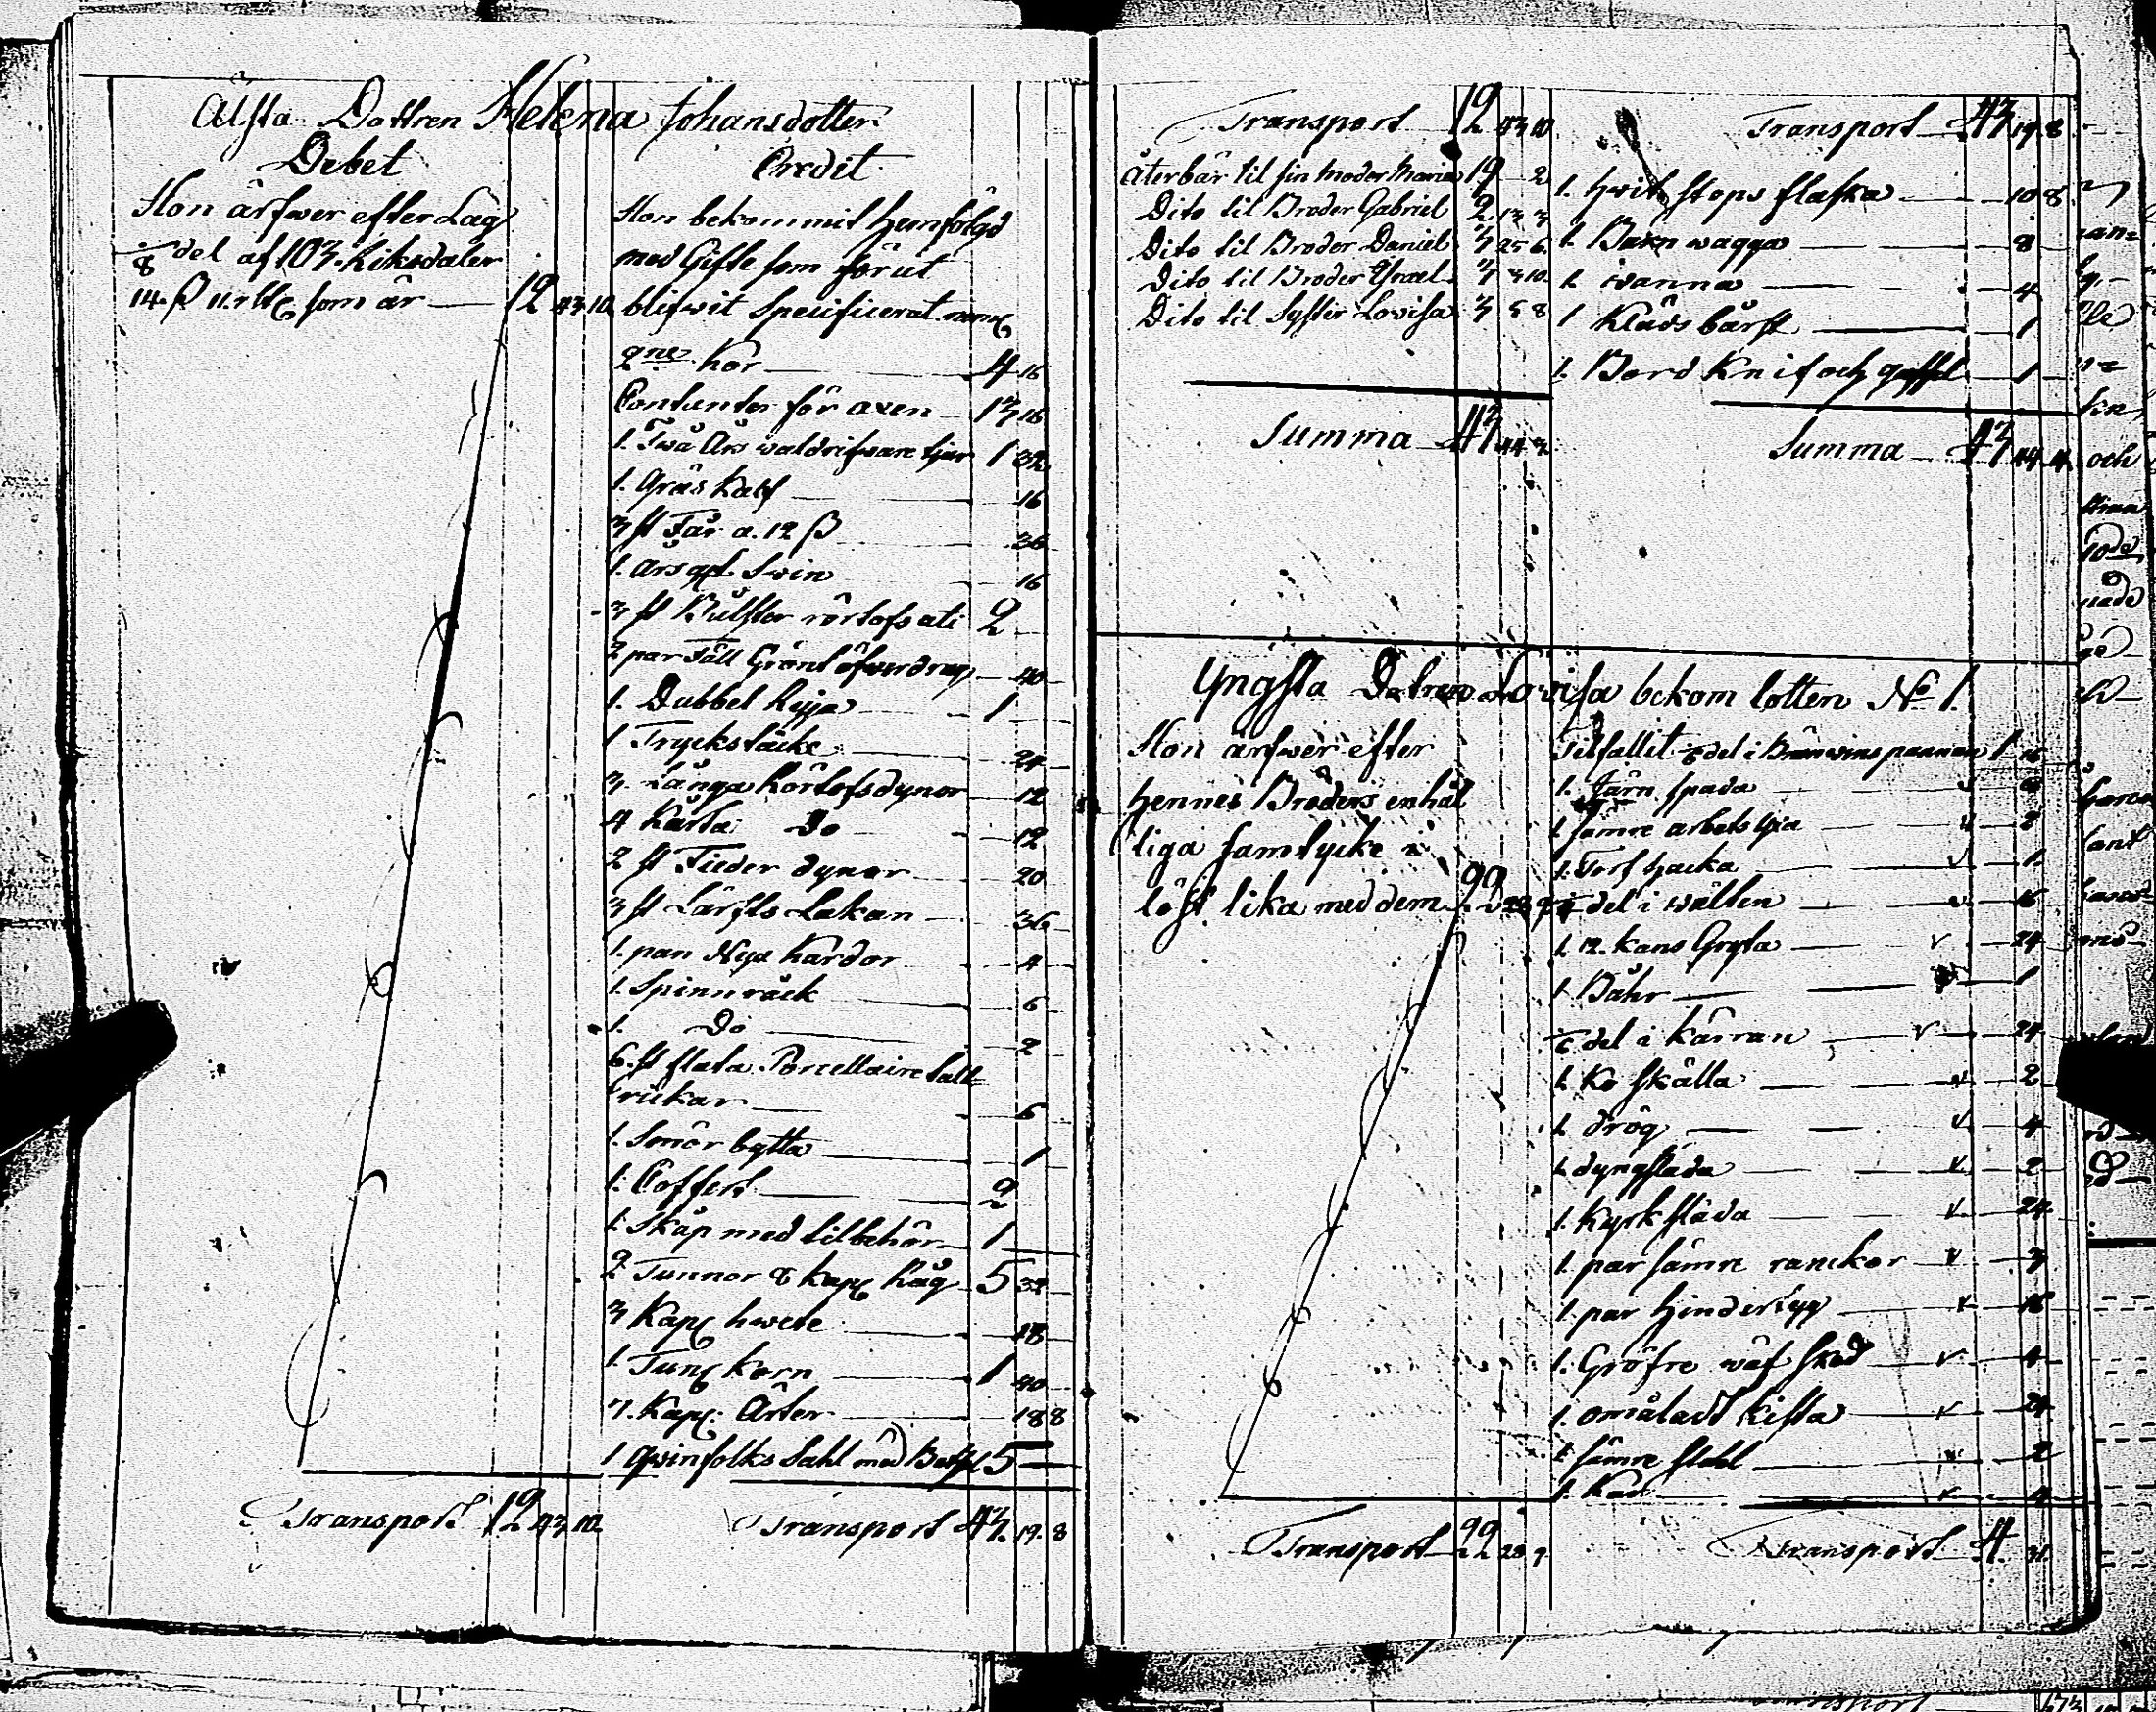 Älsta Dottren Helena Johansdotter
Debet
Hon ärfwer efter Lag
1/8 del af 103. Riksdaler
14. ß 11. rst som är 12 43 10
Transport 12 43 10
Credit
Hon bekommit hemfölgd
med Gifte som förut
blifwit Specificerat
2ne Kor 4 16
Contanter för axen 13 16
1. Twå Års tjur 1 32
1. Gräs Kalf 16
3 st Får a. 12 ß 36
1. års Swin 16
3 st Bulster 2
2 par 40
1. Dubbel Ryja 1
1 Tryckstäcke 24
3. Långa dynor 12
4 Korta Do 12
2 st Fieder dynor 20
3 st Lärfts Lakan 36
1. par Nya Kardor 4
1. Spinnråck 6
1. Do 2
6. st flata Porcellaine tall-
rickar 6
1. Smör bytta 1
1. Coffert 2
1. Skåp med tilbehör 1
2 Tunnor 8 kap Råg 5 32
3 Kap hwete 18
1. Tun korn 1 40
7. Kap. Ärter 18 8
1 qwinfolks Sahl med 5
Transport 43 19. 8
Transport 12 43 10
Återbär til sin moder Maria 19 2
Dito til Broder Gabriel 2 13 3
Dito til Broder Daniel 3 25 6
Dito til Broder 3 3 10
Dito til Syster Lovisa 3 5 8
Summa 43 44
Transport 43 19 8
1. hwit stops flaska 10 8
1. Barn wagga 8
1. wanna 4
1 Klädsbårst 1
1. Bord Knif och gaffel 1
Summa 43 44 4
Yngsta Dotren Lovisa bekom lotten No 1.
Hon ärfwer efter
hennes Bröders enhäl
liga samtycke i
löst lika med dem 22 28 9
Transport 22 28 9
Tilfallit 1/6 del i Bränwins pannan 1 16
1. Järn spada 8
1. sämre arbets yxa 2
1. Torf hacka 1
del i wälten 16
1. 12. kans Gryta 24
1. Båhr 1
1/6 del i kärran 24
1. Ko skälla 2
1. drög 4
1. dyngsläda 2
1. Kyrk släda 24
1. par sämre ranckor 3
1. par hindertyg 16
1. Gröfre wäf sked 4
1. omåladt kista 24
1. sämre stohl 2
1. Kar 4
Transport 4. 31.